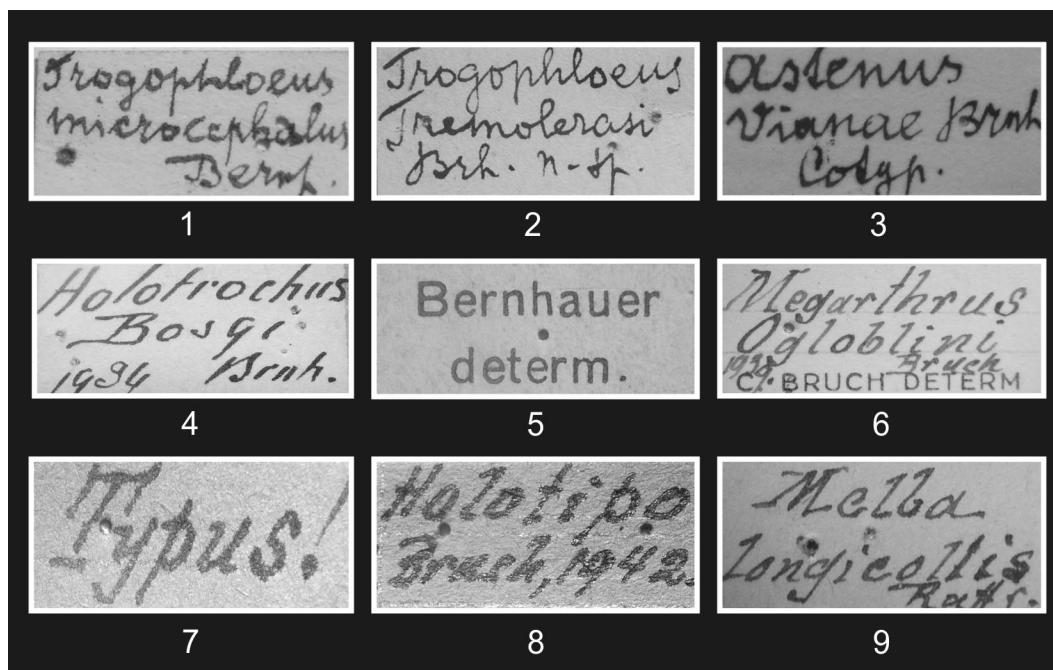 Trogophloeus
microcephalus
Bernh.
1
Trogophloeus
Tremolerasi
Brh. n-sp.
2
Astenus
Vianae Brnh
Cotyp.
3
Holotrochus
Bosqi
1934 Brnh.
4
Bernhauer
determ.
5
Megarthrus
Ogloblini
1938 Bruch
C. BRUCH DETERM
6
Typus!
7
Holotipo
Bruch, 1942.
8
Melba
longicollis
Raffr.
9